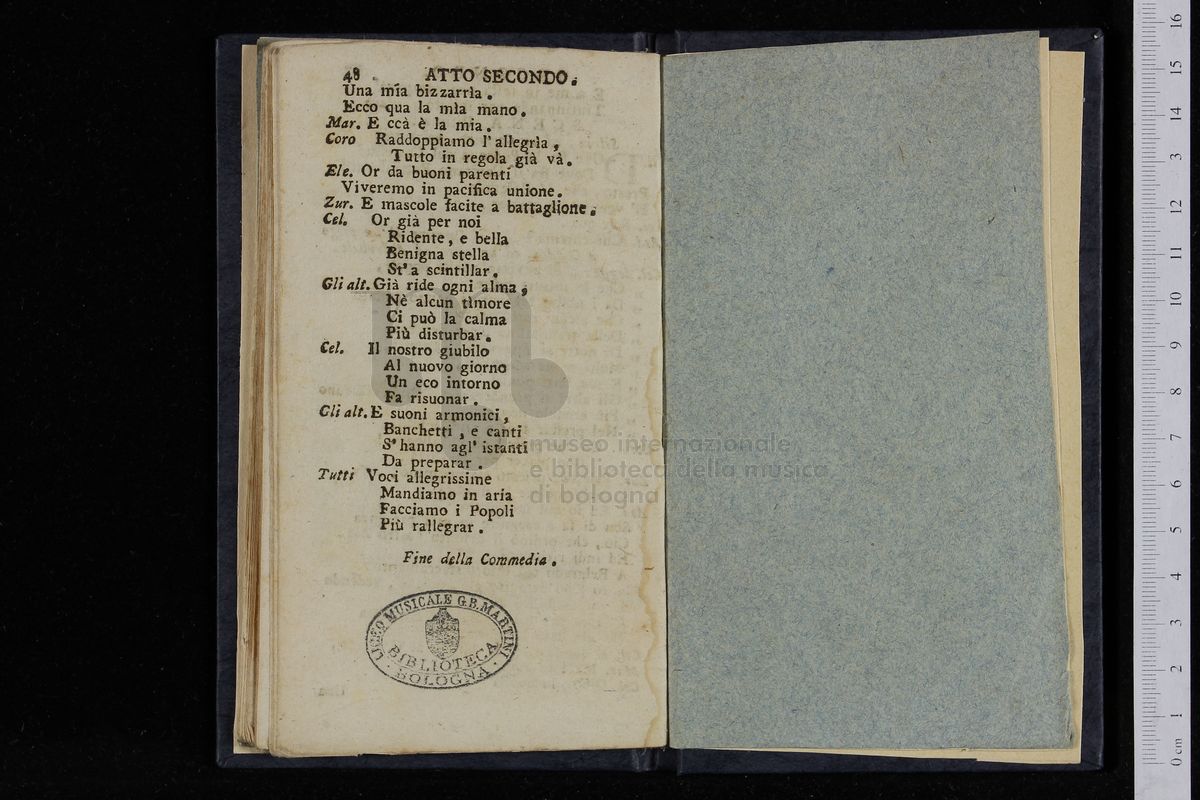 48 . ATTO SECONDO.
Una mia bizzarrìa .
Ecco qua la mìa mano.
Mar. E ccà è la mia.
Coro Raddoppiamo l' allegrìa ,
Tutto in regola già và.
Ele. Or da buoni parenti
Viveremo in pacifica unione.
Zur. E mascole facite a battaglione.
Cel. Or già per noi
Ridente, e bella
Benigna stella
St' a scintillar.
Gli alt. Già ride ogni alma,
Nè alcun tìmore
Ci può la calma
Più disturbar.
Cel. Il nostro giubilo
Al nuovo giorno
Un eco intorno
Fa risuonar .
Gli alt. E suoni armonici ,
Banchetti , e canti
S' hanno agl' istanti
Da preparar .
Tutti Voci allegrissime
Mandiamo in aria
Facciamo i Popoli
Più rallegrar .
Fine della Commedia .
LICEO MUSICALE G.B. MARTINI
BIBLIOTECA
· BOLOGNA ·
museo internazionale
e biblioteca della musica
di bologna
0 cm 1 2 3 4 5 6 7 8 9 10 11 12 13 14 15 16